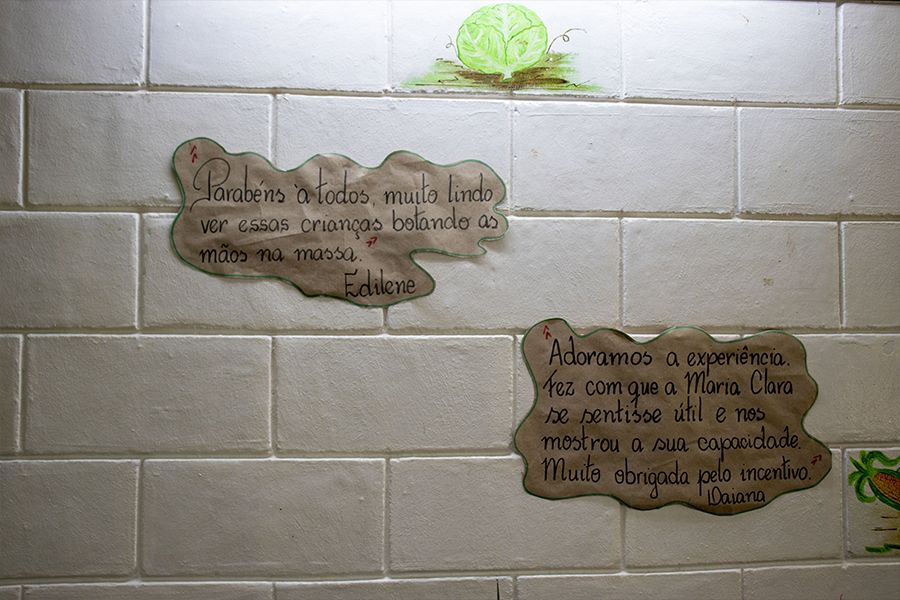 Parabéns à todos, muito lindo
ver essas crianças botando as
mãos na massa.
Edilene
Adoramos a experiência.
Fez com que a Maria Clara
se sentisse útil e nos
mostrou a sua capacidade.
Muito obrigada pelo incentivo.
Daiana